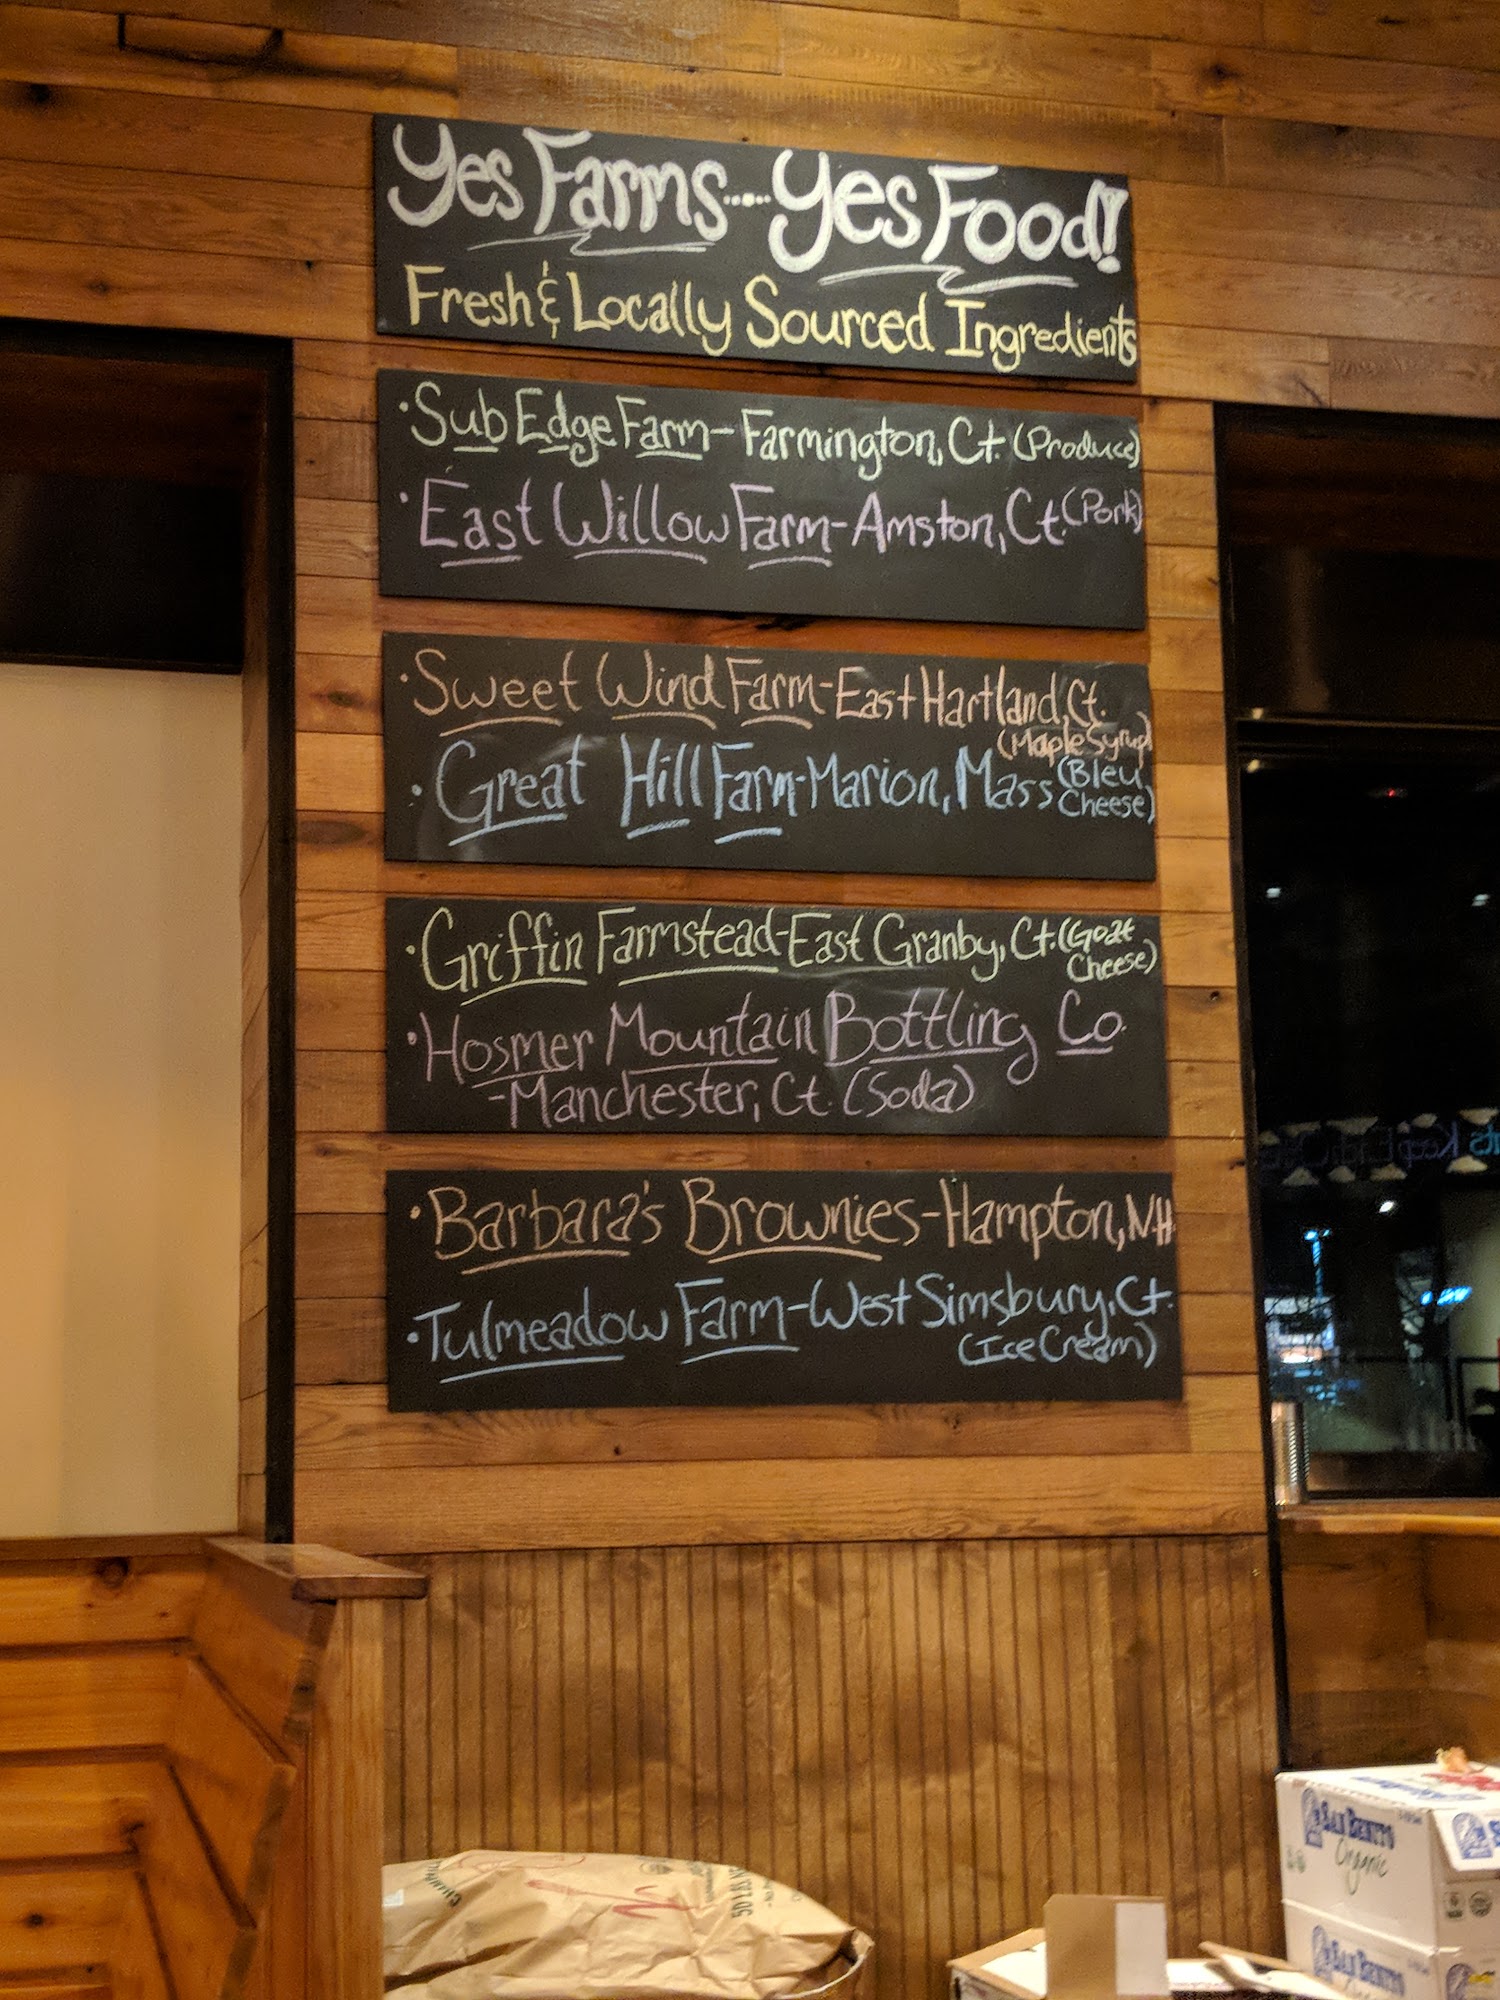 Yes Farms.....Yes Food!
Fresh & Locally Sourced Ingredients
• Sub Edge Farm - Farmington, Ct. (Produce)
• East Willow Farm - Amston, Ct. (Pork)
• Sweet Wind Farm - East Hartland, Ct.
(Maple Syrup)
• Great Hill Farm - Marion, Mass (Bleu
Cheese)
• Griffin Farmstead - East Granby, Ct. (Goat
Cheese)
• Hosmer Mountain Bottling Co.
- Manchester, Ct. (Soda)
• Barbara's Brownies - Hampton, N.H.
• Tulmeadow Farm - West Simsbury, Ct.
(Ice Cream)
50 LBS
SAN BENITO
Organic
SAN BENITO